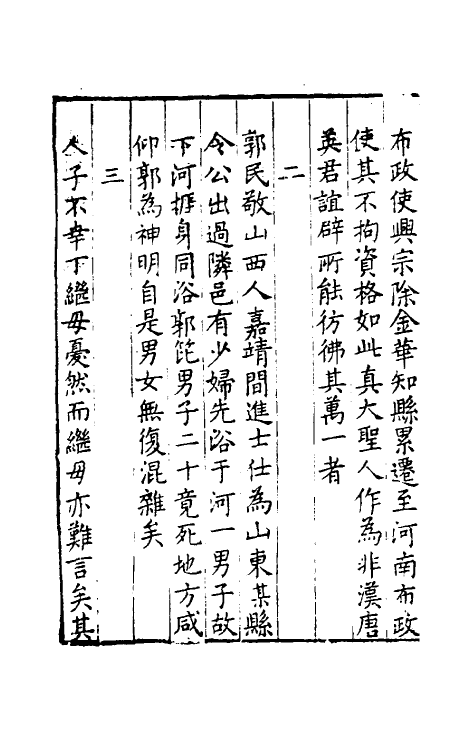 布政使興宗除金華知縣累遷至河南布政
使其不拘資格如此真大聖人作為非漢唐
英君誼辟所能彷彿其萬一者
二
郭民敬山西人嘉靖間進士仕為山東某縣
令公出過隣邑有少婦先浴于河一男子故
下河挨身同浴郭笓男子二十竟死地方咸
仰郭為神明自是男女無復混雜矣
三
人子不幸下繼母憂然而繼母亦難言矣其